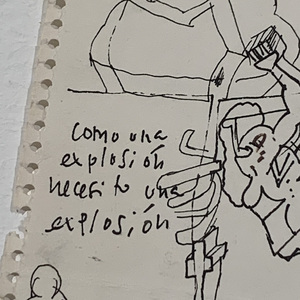 como una
explosión
necesito una
explosión